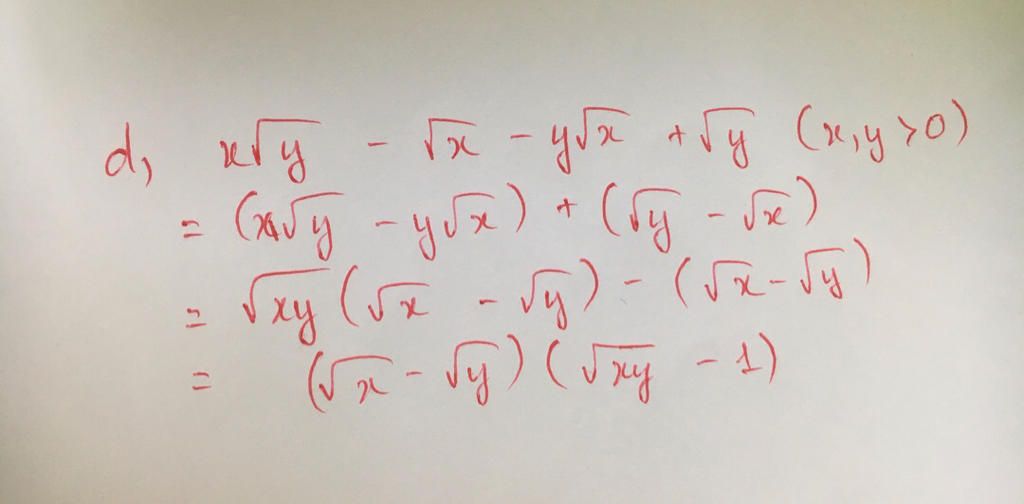 d, x√y - √x - y√x + √y (x,y>0)
= (x√y - y√x) + (√y - √x)
= √xy (√x - √y) - (√x - √y)
= (√x - √y) (√xy - 1)